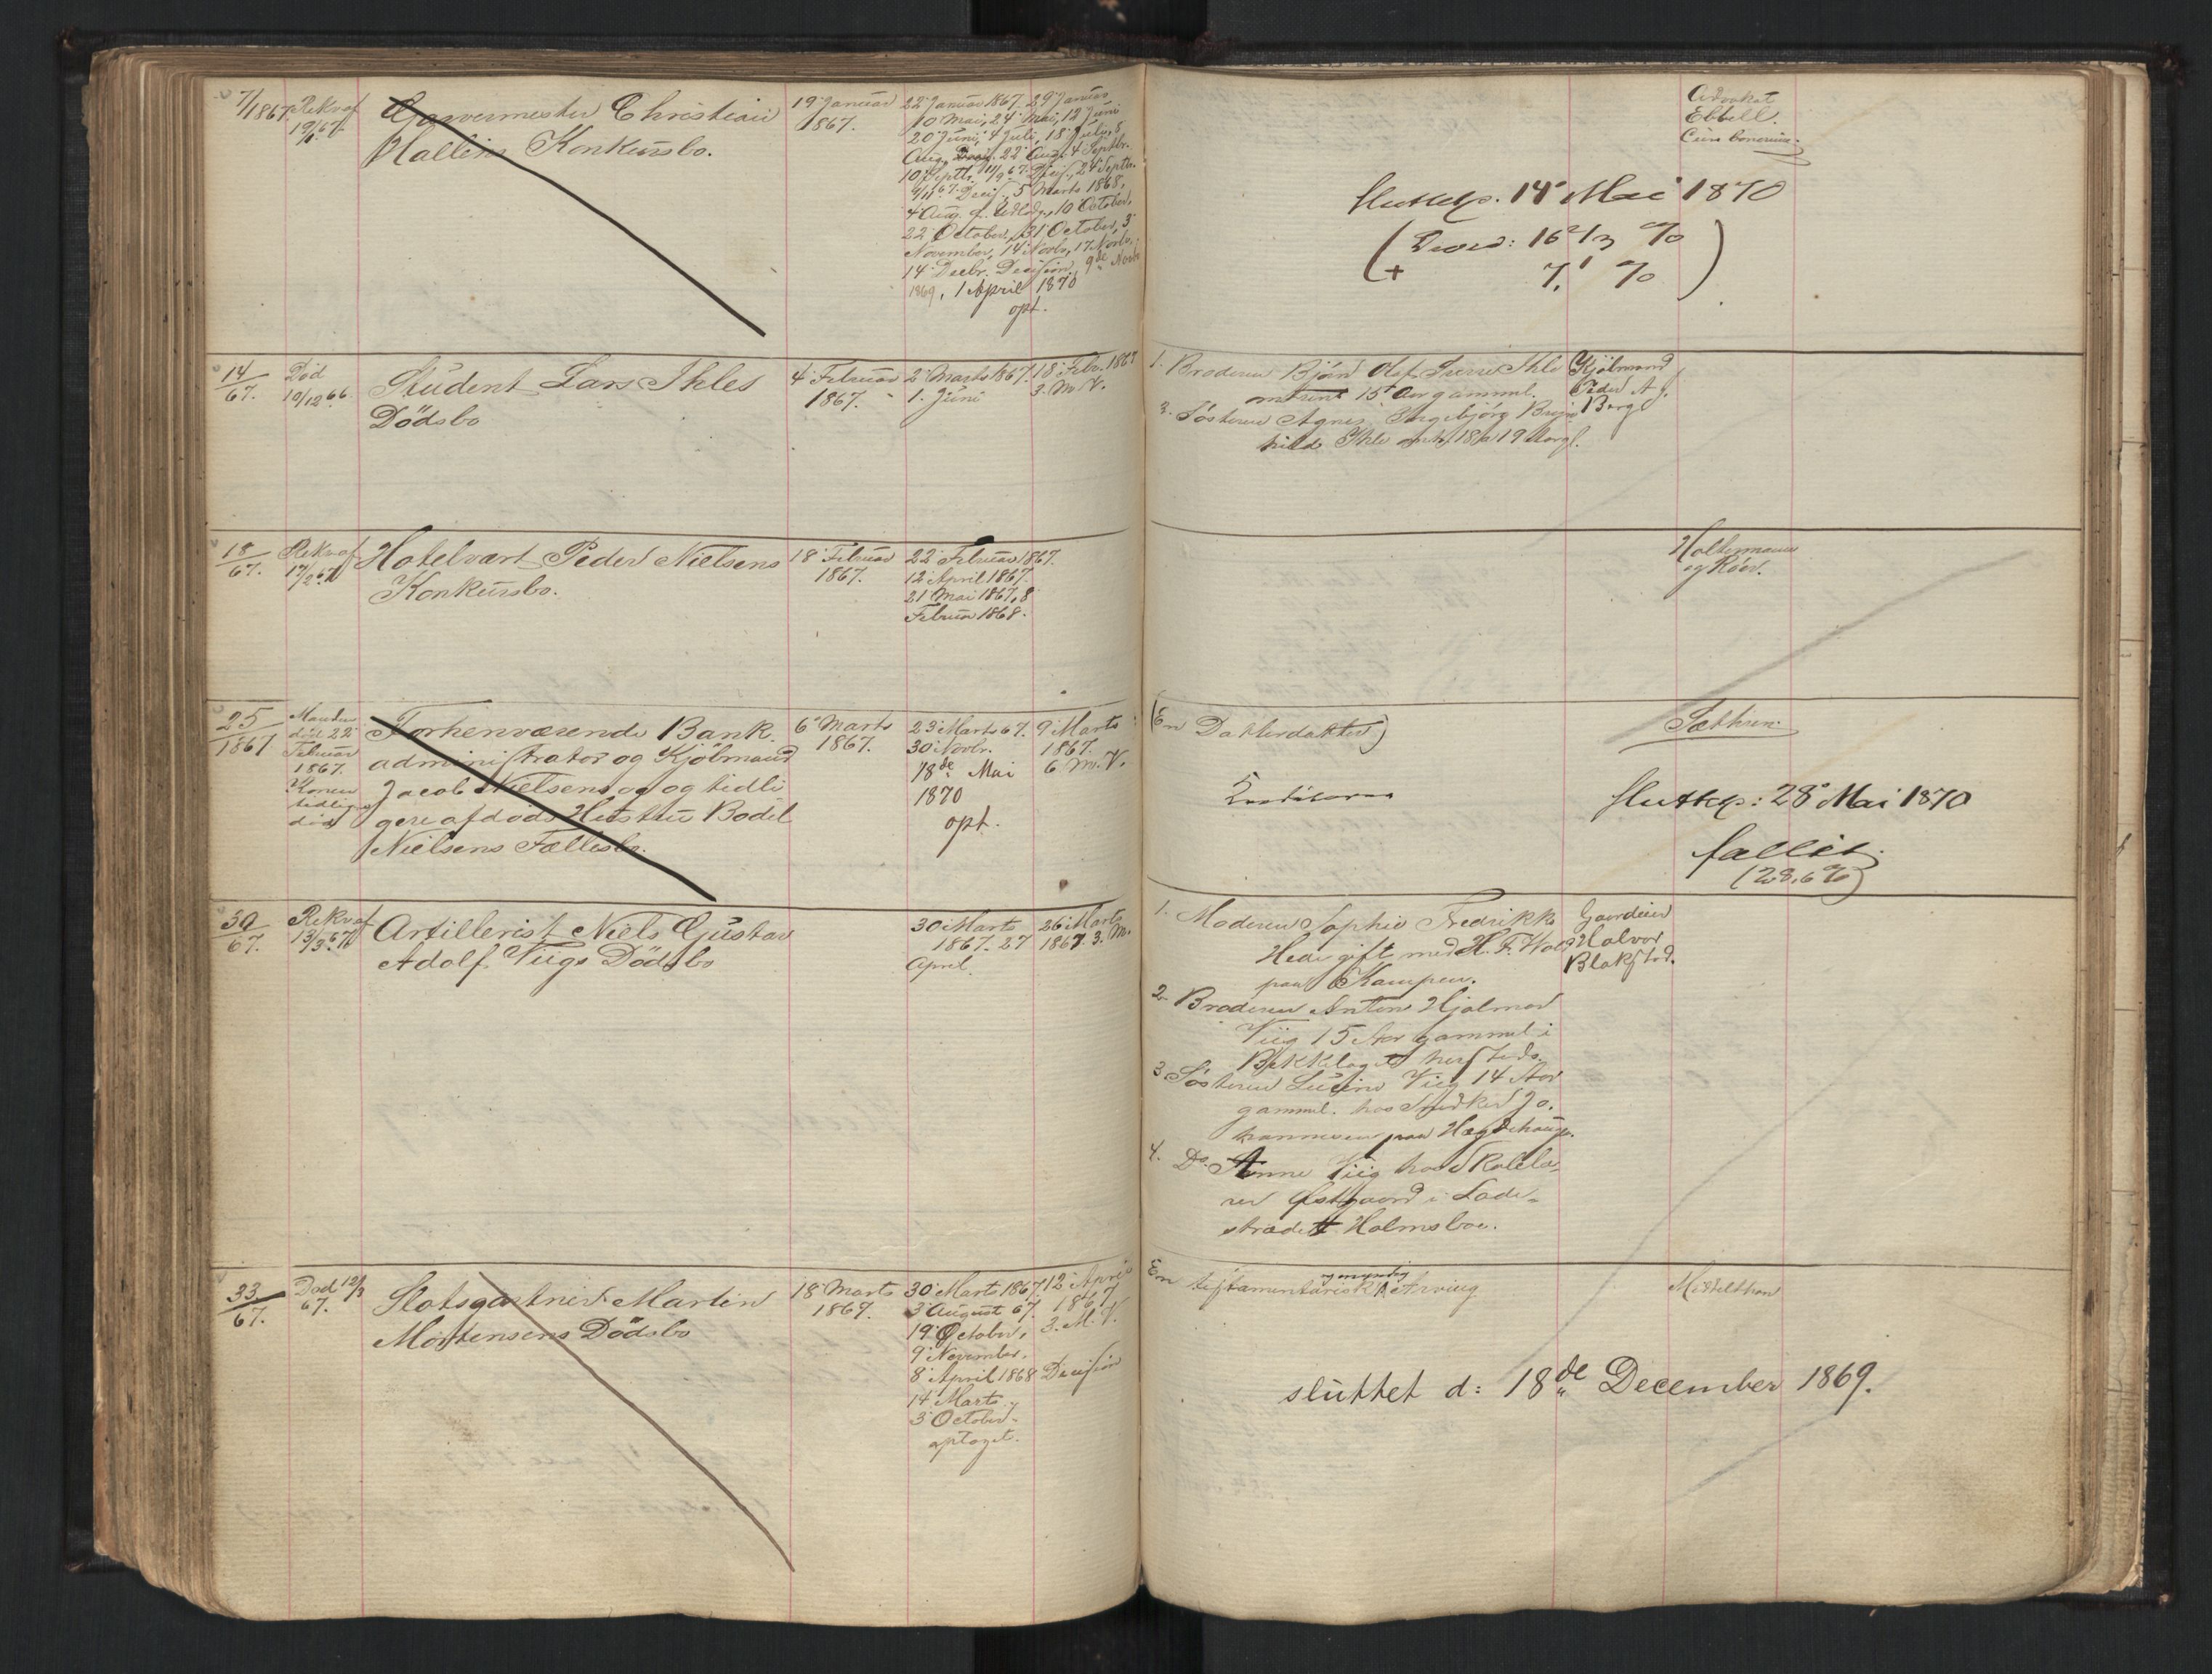 7/1867.
Rekv af
19/1 67.
Garvermester Christian
Hallins Konkursbo.
19' Januar
1867.
22' Januar 1867. 29' Januar
10 Mai, 24' Mai, 12' Juni
20' Juni, 4' Juli, 18' Juli, 8'
Aug. 22' Aug. 4' Septbr.
10' Septbr. 11/9 67. Decis., 24' Septbr.
Decis., 5' Marts 1868,
4' Aug. 10' October,
22' October, 31' October, 3'
November, 14' Novbr, 17' Novbr.
14' Decbr. Decision, 9de Novb
1869, 1 April 1870
opt.
Advokat
Ebbell.
Cura bonorum.
Sluttet 14' Mai 1870
( Divid: 16 2/3 %
+ 7. % )
14/67.
Död
10/12 66.
Student Lars Ihles
Dödsbo
4' Februar
1867.
2' Marts 1867.
1. Juni
18' Febr. 1867
3. M. V.
1. Broderen Björn Olaf Ihle
omtrent 15 Aar gammel.
2. Søsteren Agnes Ingebjörg
hild Ihle omtr. 18 a 19 Aar gl.
Kjöbmand
Peder A.
Berg
18/67.
Rekv af
17/2 67
Hotelvært Peder Nielsens
Konkursbo.
18' Februar
1867.
22' Februar 1867.
12' April 1867.
21' Mai 1867, 8'
Februar 1868.
Holtermann
og Roer.
25/1867
Manden
död 22'
Februar
1867.
Konen
tidligere
död
Forhenværende Bank-
administrator og Kjöbmand
Jacob Nielsens og og tidli
gere afdöde Hustru Bodil
Nielsens Fællesbo.
6' Marts
1867.
23' Marts 67.
30' Novbr.
18de Mai
1870
opt.
9' Marts
1867.
6 M. V.
(En Datterdatter)
Kreditorerne
Sæthren
Sluttet: 28' Mai 1870
fallit
(28,6 %)
30/67.
Rekv af
13/3 67
Artillerist Niels Gustav
Adolf Viigs Dödsbo
30' Marts
1867. 27
April.
26' Marts
1867. 3. M.
1. Moderen Sophie Fredrikke
gift med H. F.
paa Kampen.
2. Broderen Anton Hjalmar
Viig 15 Aar gammel i
Bekkelaget hersteds.
3. Søsteren Lucine Viig 14 Aar
gammel. hos Snedker Jo-
hannesen paa Hægdehaug.
4. Do. Anne Viig hos Skolelæ-
rer Østgaard i Lade-
strædet Holmsboe.
Gaardeier
Halvor
Blakstad.
33/67.
Død 12/3
67.
Slotsgartner Martin
Mortensens Dödsbo
18' Marts
1867.
30' Marts 1867.
3' August 67.
19' October,
9' November.
8' April 1868 Decision
14' Marts
3' October
optaget.
12' April
1867
3. M. V.
En testamentarisk og myndig Arving
Middelthon
sluttet d: 18de December 1869.